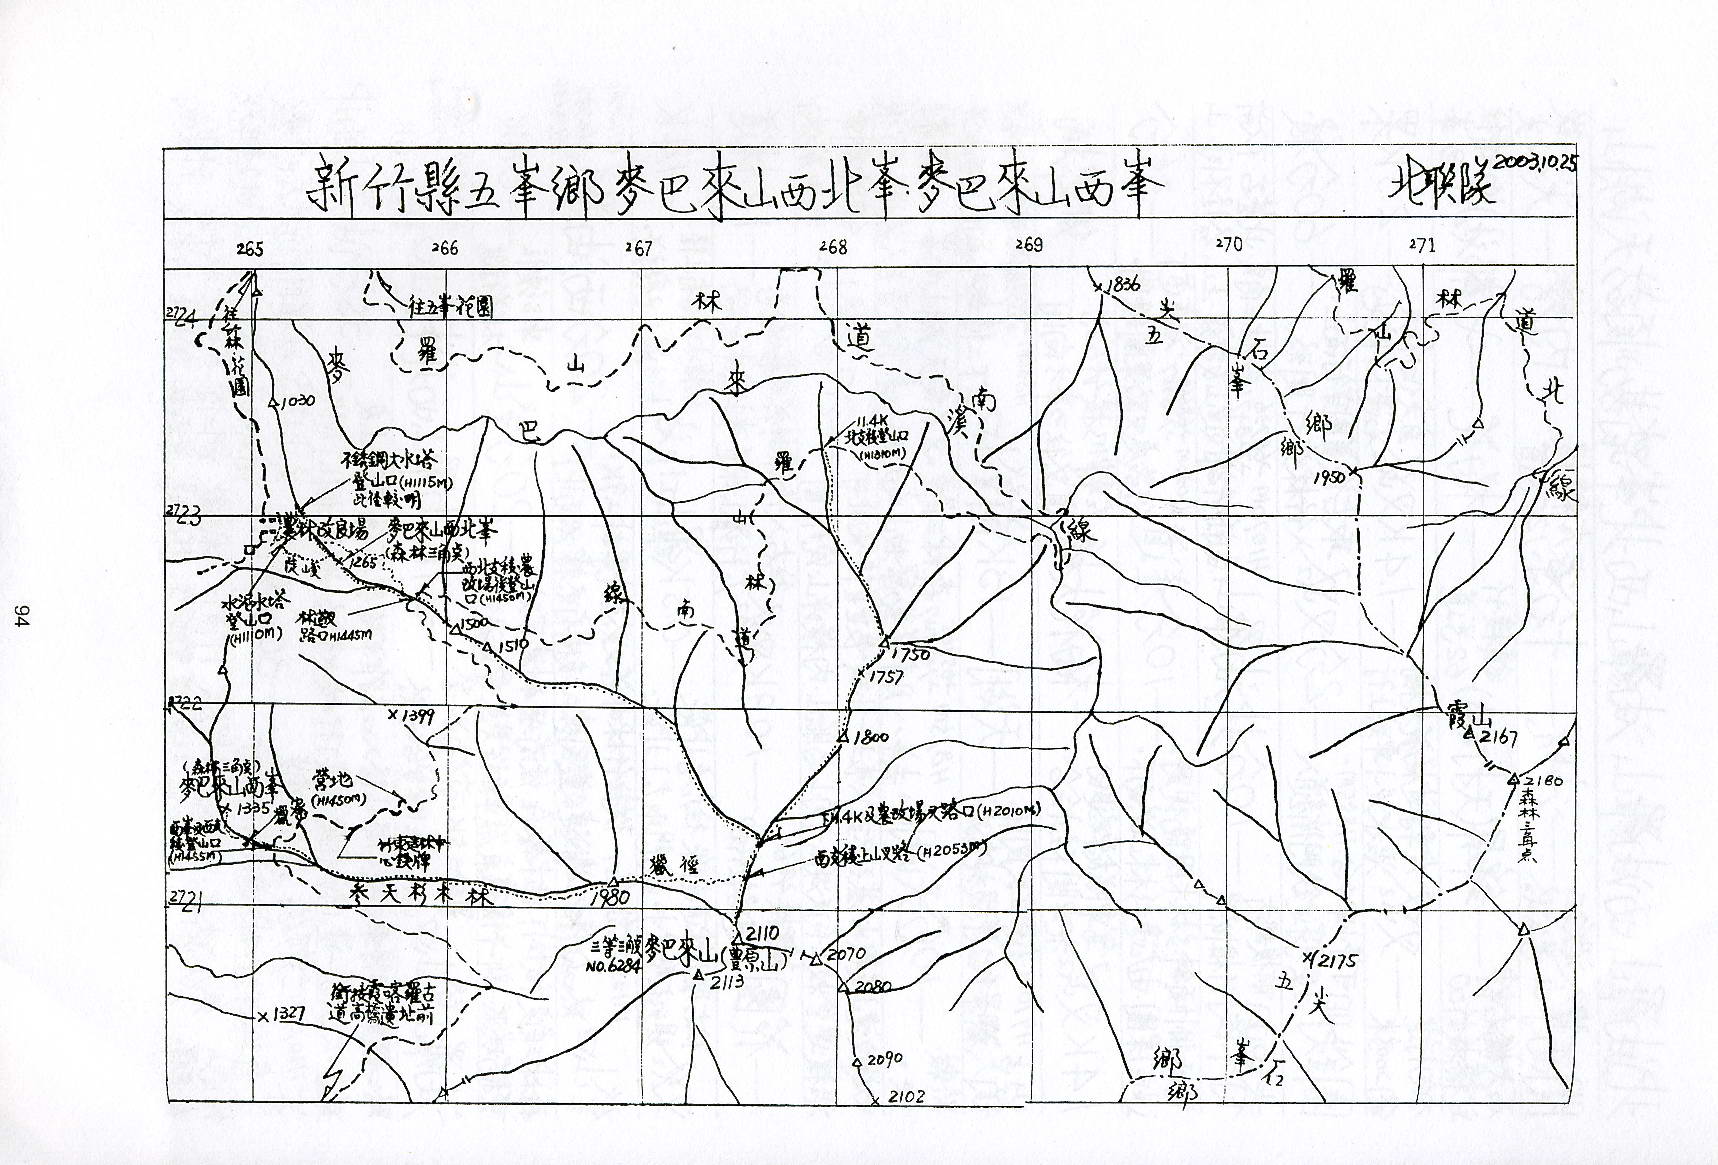 新竹縣五峯鄉麥巴來山西北峯.麥巴來山西峯
北联隊
2003.10.25
265
266
267
268
269
270
271
2724
2723
2722
2721
往森林花園
往五峯花園
羅山林道南線
羅山林道北線
麥巴來溪
1836
五尖石峯
鄉
鄉
1030
1950
11.4K
北支稜登山口
(H1810M)
不銹鋼大水塔
登山口(H1115M)
此徑較明
農林改良場
麥巴來山西北峯
(森林三角点)
陡峻
1265
西北支稜農
改場後登山
口(H1450M)
水泥水塔
登山口
(H1110M)
林徑
路口H1445M
羅山林道南線
1500
1510
1750
1757
1399
1800
霞山
2167
2180
森林三角点
(森林三角点)
麥巴來山西峯
1335
獵寮
營地
(H1450M)
登山口
(H1455M)
11.4K及農改場叉路口(H2010M)
西支稜上山叉路(H2053M)
獵徑
參天杉木林
1980
三等三角点
NO.6284
麥巴來山(豊原山)
2110
2113
2070
2080
2090
2102
2175
銜接霞喀羅古
道高橋遺址前
1327
五尖石峯
鄉
鄉
94